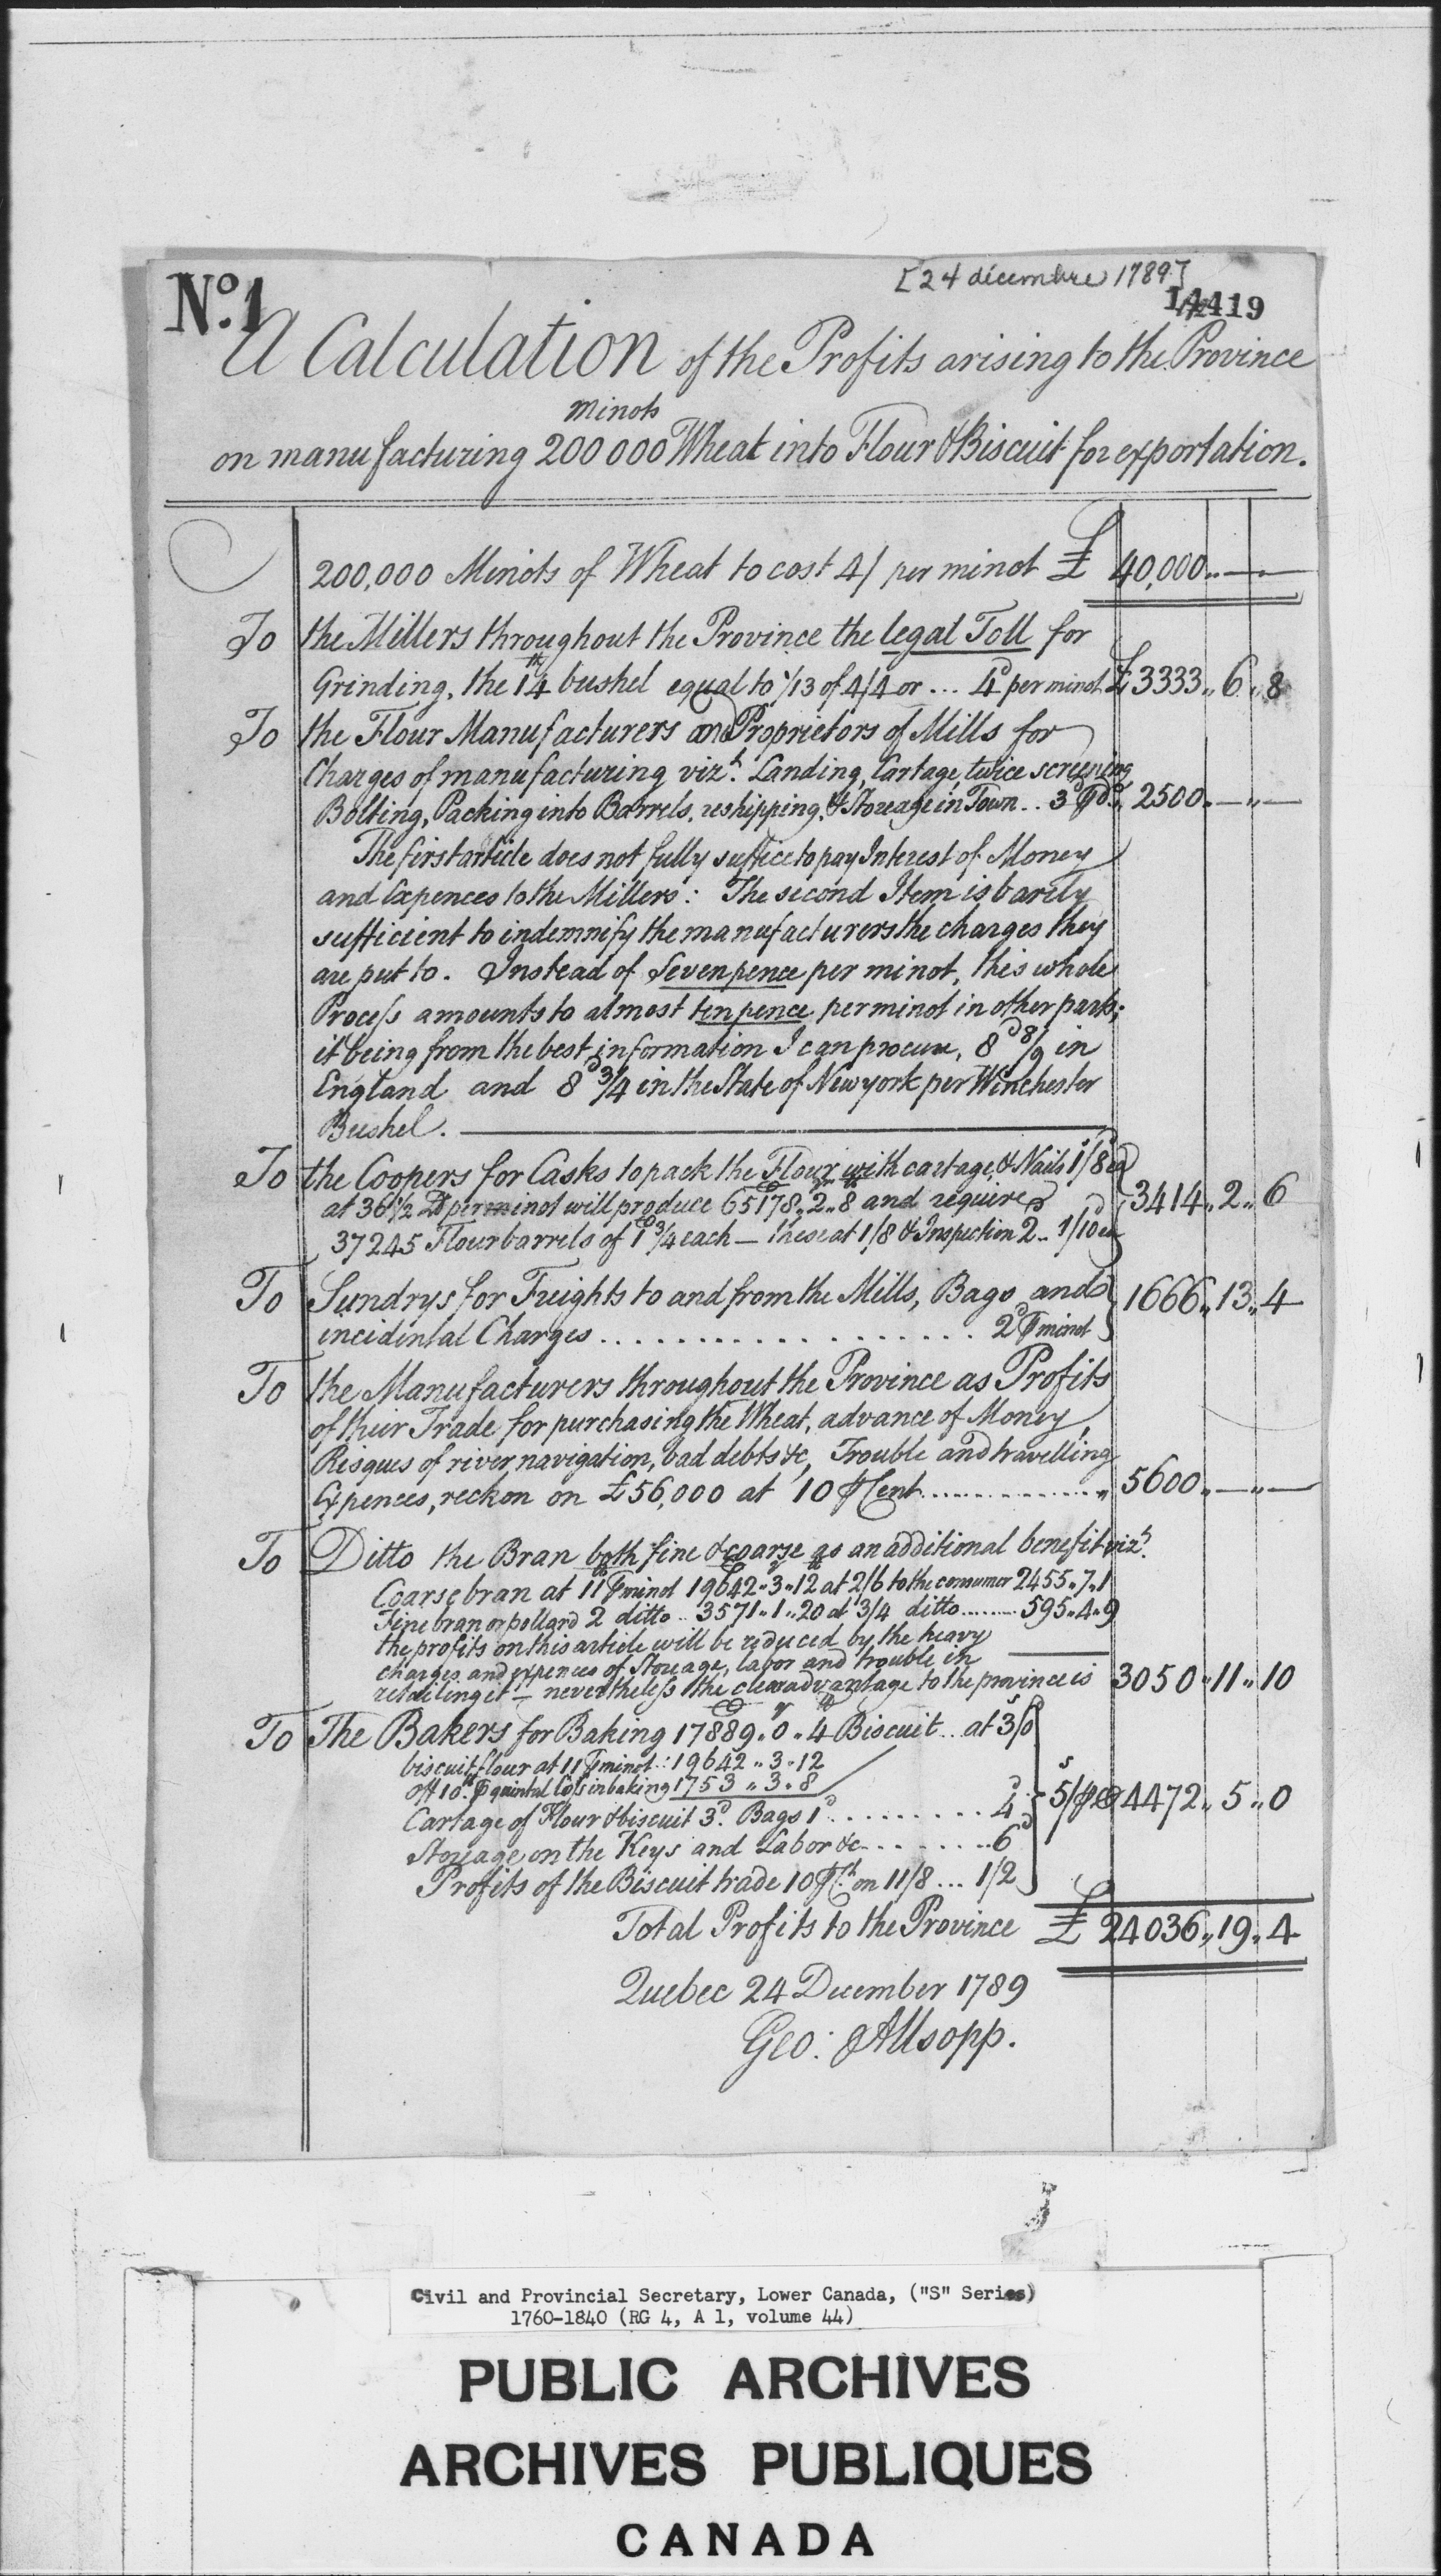 No. 1
[24 décembre 1789]
14419
A Calculation of the Profits arising to the Province
minots
on manufacturing 200000 Wheat into Flour & Biscuit for exportation.
200,000 Minots of Wheat to cost 4/ per minot £ 40,000 „ — „ —
To the Millers throughout the Province the legal Toll for
Grinding, the 14th bushel equal to 1/13 of 4/4 or ... 4d per minot £ 3333 „ 6 „ 8
To the Flour Manufacturers and Proprietors of Mills for
Charges of manufacturing vizt. Landing, Cartage, twice screening
Bolting, Packing into Barrels, reshipping, & Storeage in Town .. 3d ⅌ do. „ 2500 „ — „ —
The first article does not fully suffice to pay Interest of Money
and Expences to the Millers: The second Item is barely
sufficient to indemnify the manufacturers the charges they
are put to. Instead of sevenpence per minot, this whole
Process amounts to almost tenpence per minot in other parts;
it being from the best information I can procure, 8d 8/9 in
England and 8d 3/4 in the State of New york per Winchester
Bushel.
To the Coopers for Casks to pack the Flour with cartage, & Nails 1s/8d ea
at 36 1/2 lb per minot will produce 65178 „ 2 „ 8 and require
37245 Flour barrels of 1 3/4 each — these at 1/8 & Inspection 2 .. 1/10d ea } 3414 „ 2 „ 6
To Sundrys for Freights to and from the Mills, Bags and
incidental Charges .................. 2d ⅌ minot } 1666 „ 13 „ 4
To the Manufacturers throughout the Province as Profits
of their Trade for purchasing the Wheat, advance of Money,
Risques of river navigation, bad debts &c, Trouble and travelling
Expences, reckon on £56,000 at 10 ⅌ Cent ............... „ 5600 „ — „ —
To Ditto the Bran both fine & coarse as an additional benefit vizt.
Coarse bran at 11lb ⅌ minot 19642 „ 3 „ 12 at 2/6 to the consumer 2455 „ 7 „ 1
Fine bran or pollard 2 ditto .. 3571 „ 1 „ 20 at 3/4 ditto ........ 595 „ 4 „ 9
the profits on this article will be reduced by the heavy
charges and expences of Storeage, labor and trouble in
retailing it — nevertheless the clear advantage to the province is 3050 „ 11 „ 10
To The Bakers for Baking 17889 „ 0 „ 4 Biscuit .. at 3s/0
biscuit flour at 11 ⅌ minot .. 19642 „ 3 „ 12
off 10lb ⅌ quintal loss in baking 1753 „ 3 „ 8
Cartage of Flour & biscuit 3d. Bags 1d .......... 4d } 5s/ ⅌ 4472 „ 5 „ 0
Storeage on the Keys and Labor &c ........ 6d
Profits of the Biscuit trade 10 ⅌ Ct. on 11/8 ... 1/2
Total Profits to the Province £ 24036 „ 19 „ 4
Quebec 24 December 1789
Geo: Allsopp.
Civil and Provincial Secretary, Lower Canada, ("S" Series)
1760-1840 (RG 4, A 1, volume 44)
PUBLIC ARCHIVES
ARCHIVES PUBLIQUES
CANADA